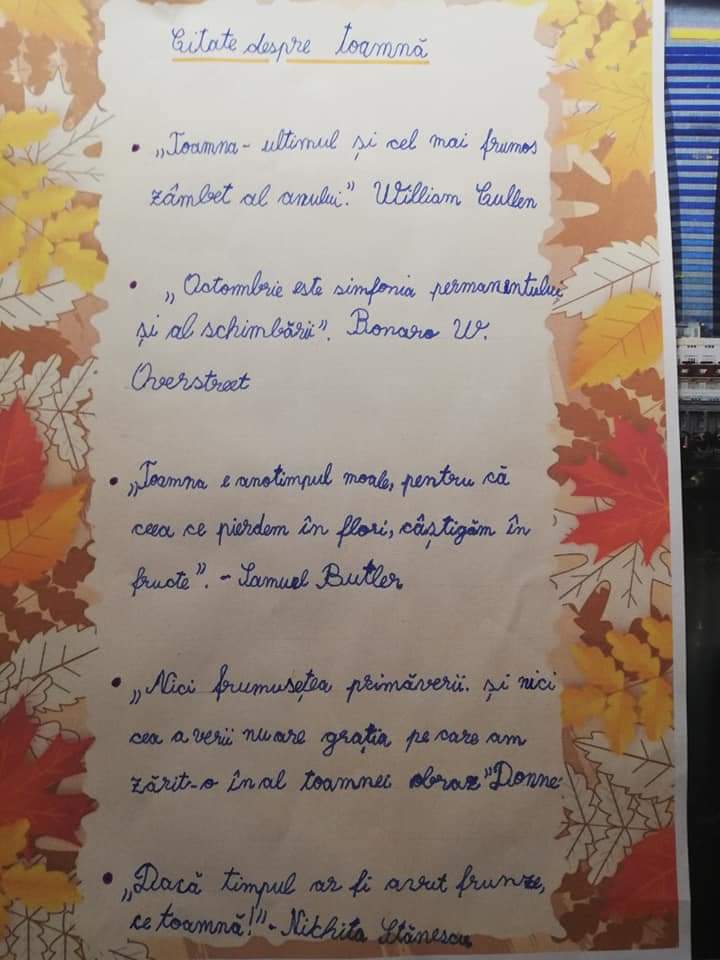 Citate despre toamnă
• „Toamna - ultimul și cel mai frumos
zâmbet al anului." William Cullen
• „Octombrie este simfonia permanentului
și al schimbării". Bonaro W.
Overstreet
• „Toamna e anotimpul moale, pentru că
ceea ce pierdem în flori, câștigăm în
fructe". - Samuel Butler
• „Nici frumusețea primăverii. și nici
cea a verii nu are grația pe care am
zărit-o în al toamnei obraz" Donne
• „Dacă timpul ar fi avut frunze,
ce toamnă!" - Nichita Stănescu